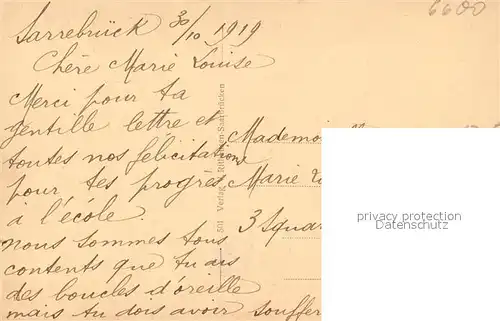 6600
Sarrebrück 30/10 1919
Chère Marie Louise
Merci pour ta
gentille lettre et
toutes nos félicitations
pour tes progres
à l'école.
nous sommes tous
contents que tu ais
des boucles d'oreille
mais tu dois avoir souffer
Mademoi
Marie
3 Squar
501 Verlag Saarbrücken
privacy protection
(Datenschutz)